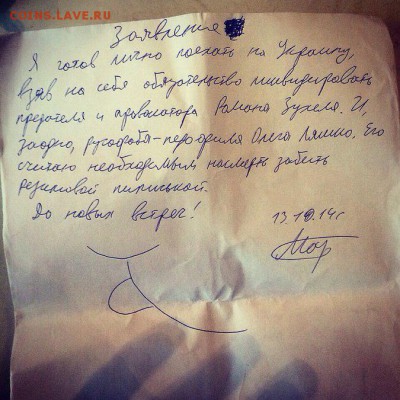 COINS.LAVE.RU
Заявление
Я готов лично поехать на Украину,
взяв на себя обязательство ликвидировать
предателя и провокатора Романа Зухеля. И,
заодно, русофоба-педофила Олега Ляшко. Его
считаю необходимым насмерть забить
резиновой пиписькой.
До новых встреч!
13.10.14г